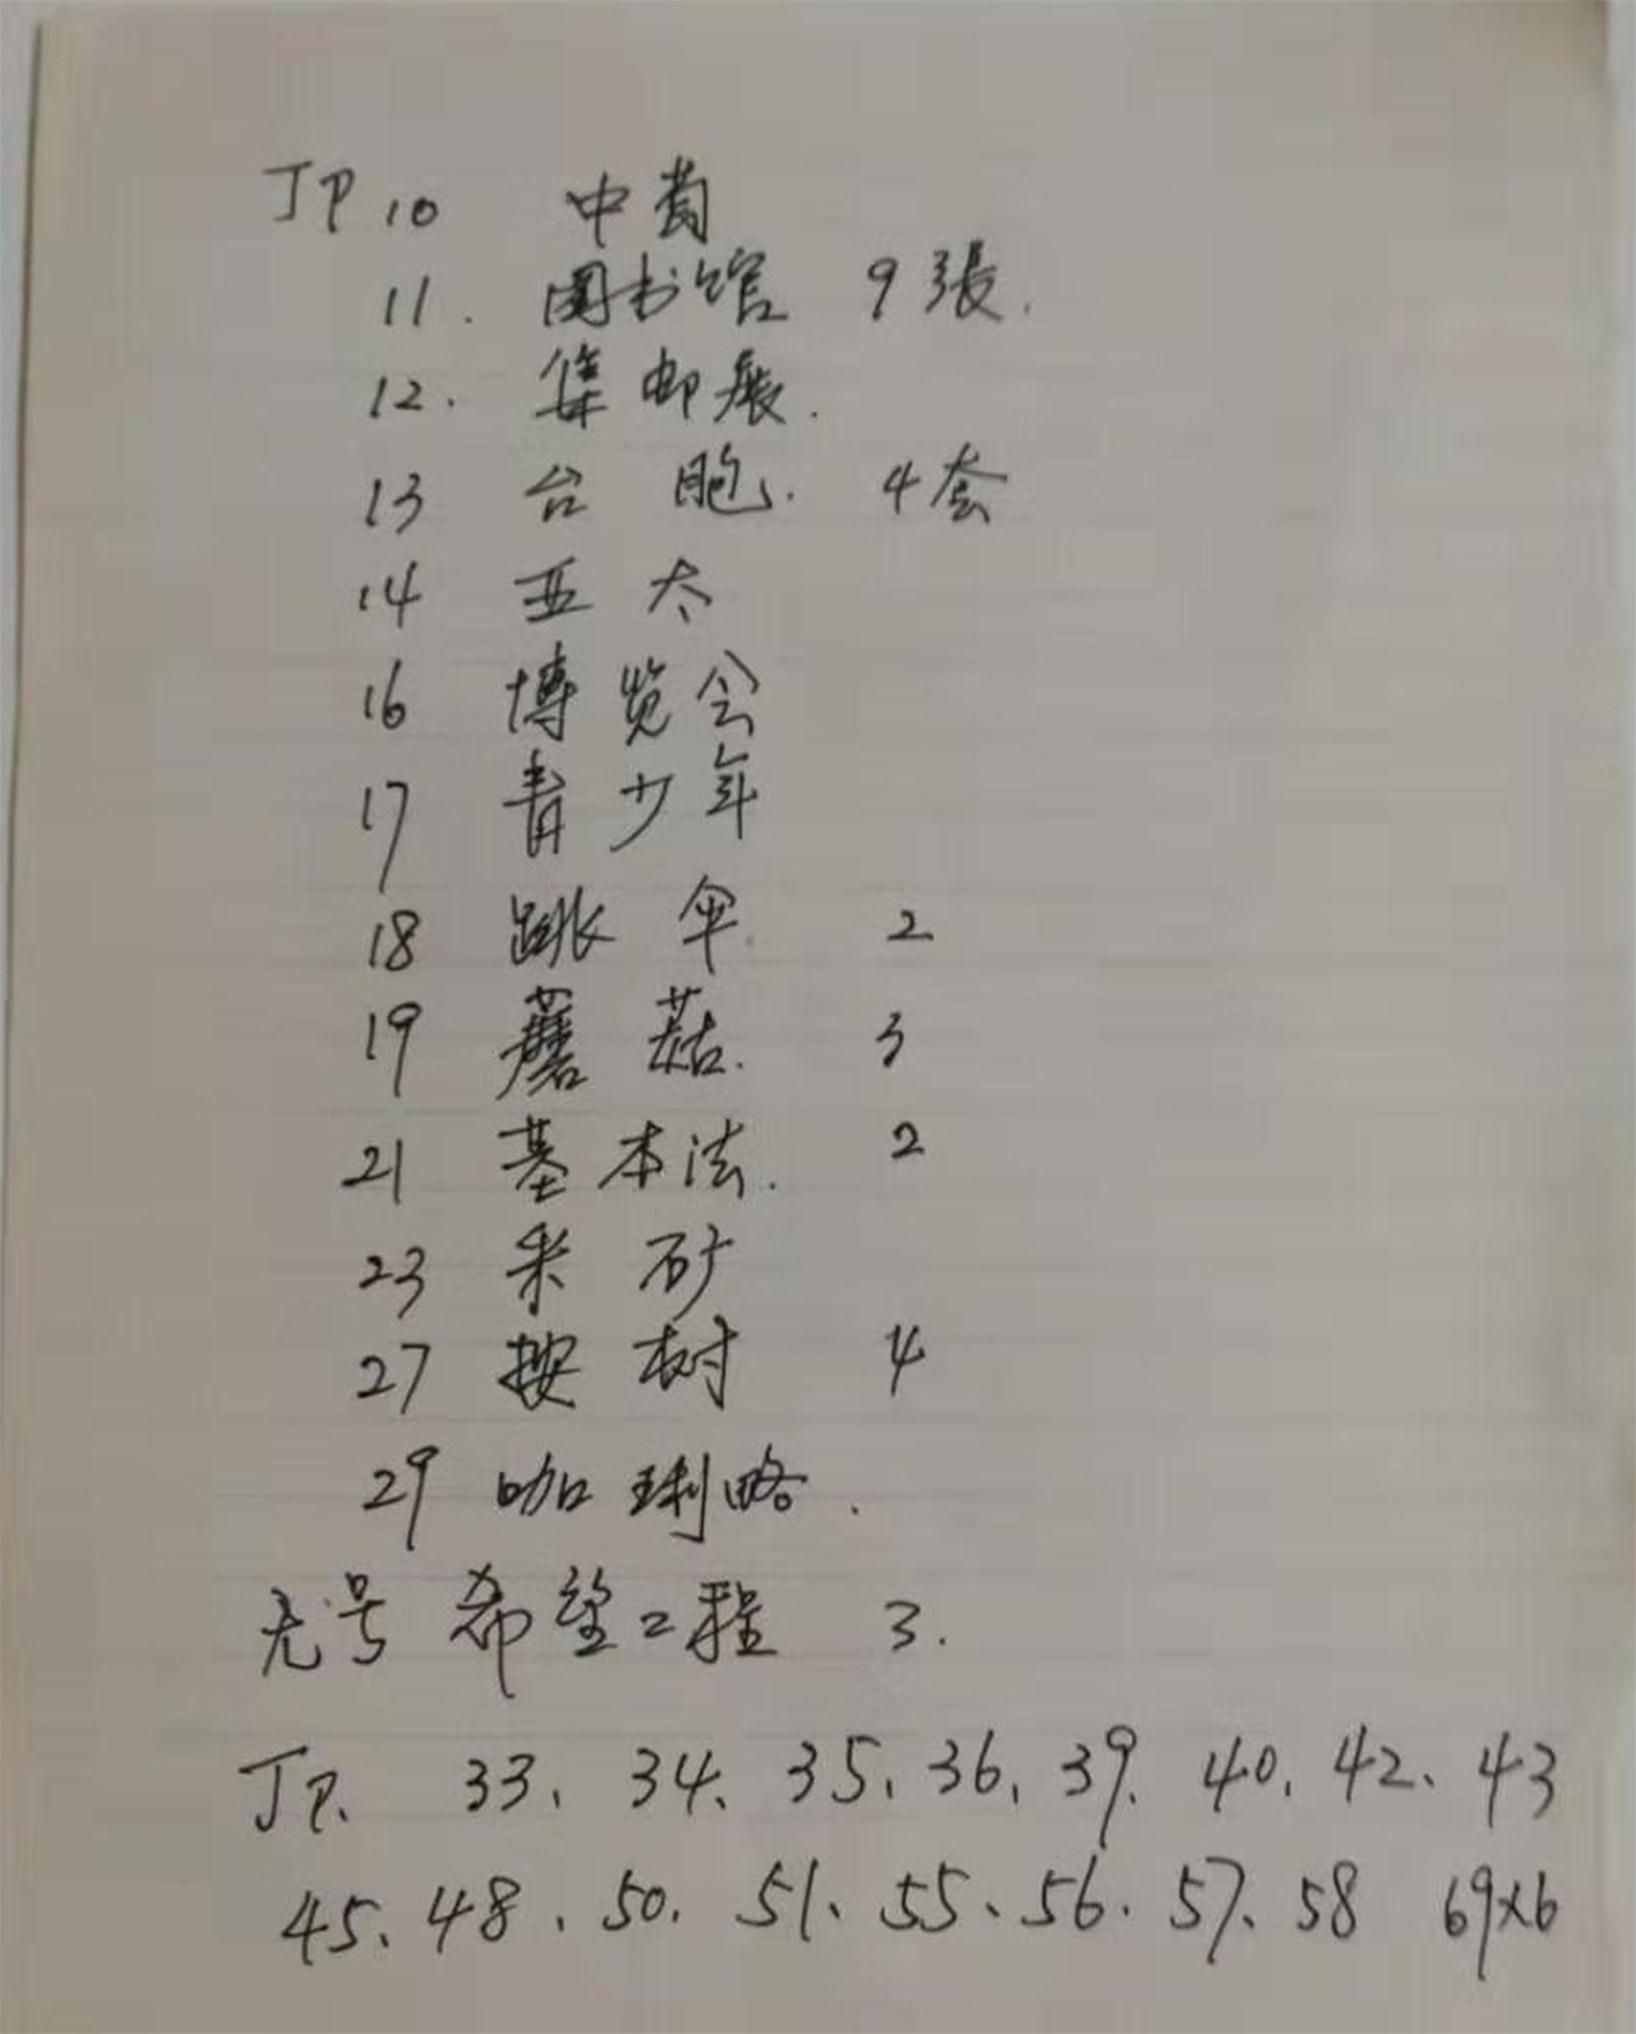 JP 10 中葡
11. 图书馆 9張.
12. 集邮展.
13 台胞. 4套
14 亚太
16 博览会
17 青少年
18 跳伞 2
19 蘑菇. 3
21 基本法. 2
23 采矿
27 桉树 4
29 咖琍略.
无号 希望工程 3.
JP、 33、34、35、36、39、40、42、43
45、48、50、51、55、56、57、58 69x6